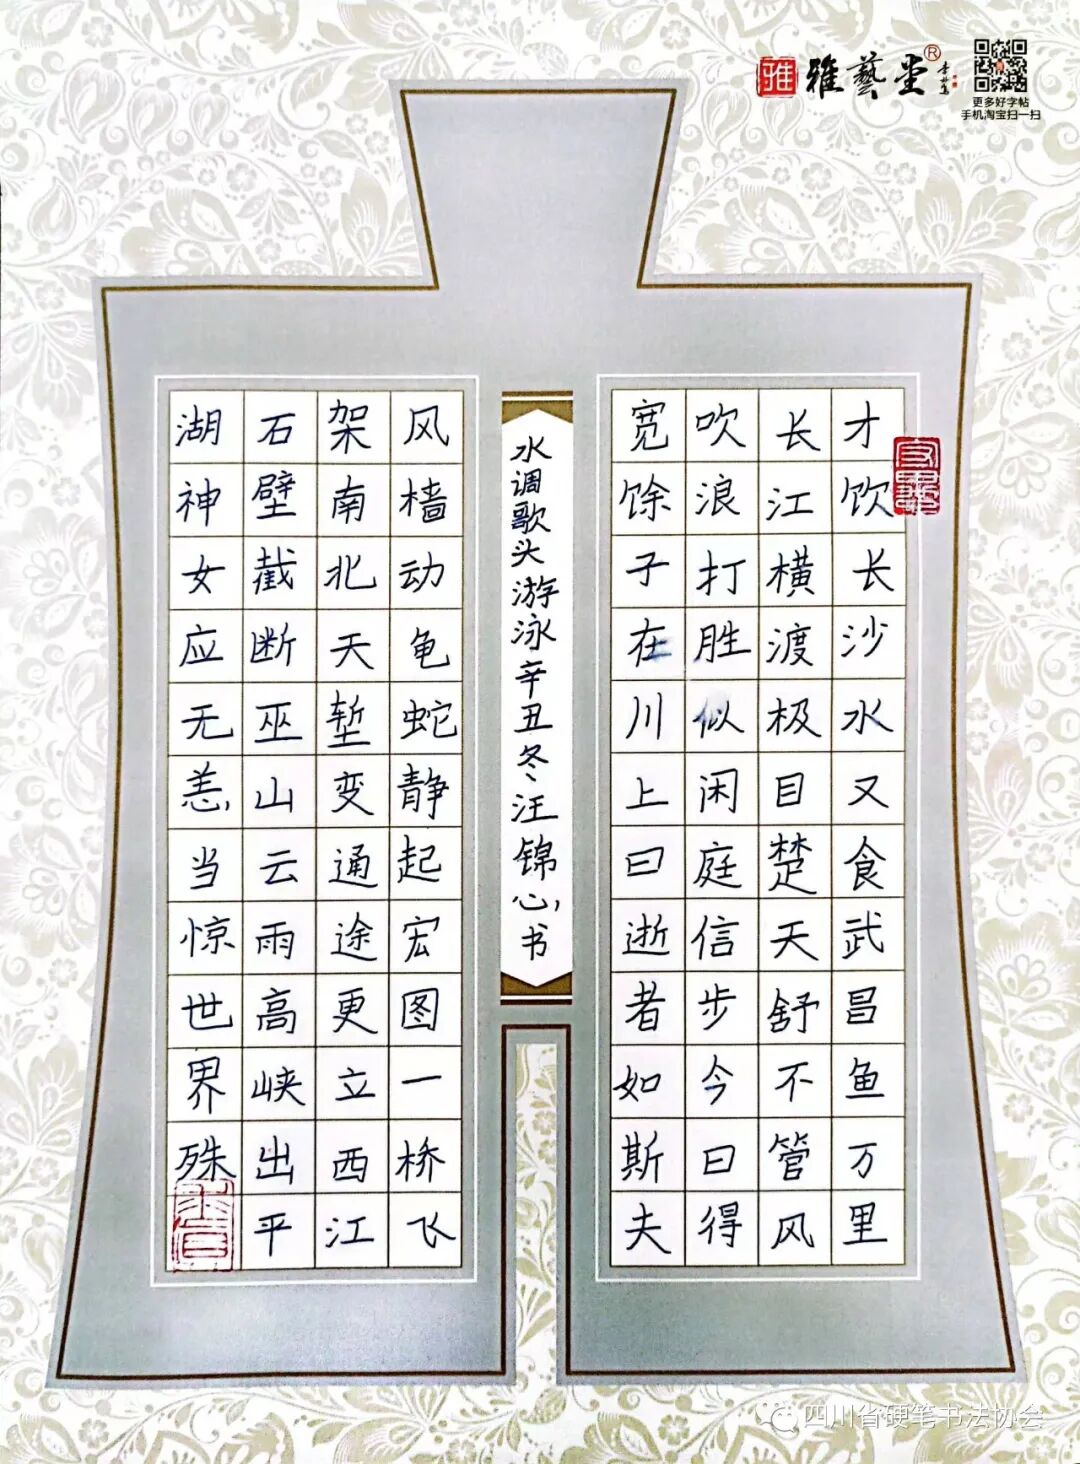 雅
雅藝堂®
更多好字帖
手机淘宝扫一扫
才饮长沙水又食武昌鱼万里
长江横渡极目楚天舒不管风
吹浪打胜似闲庭信步今日得
宽馀子在川上曰逝者如斯夫
水调歌头游泳辛丑冬汪锦心书
风樯动龟蛇静起宏图一桥飞
架南北天堑变通途更立西江
石壁截断巫山云雨高峡出平
湖神女应无恙当惊世界殊
四川省硬笔书法协会